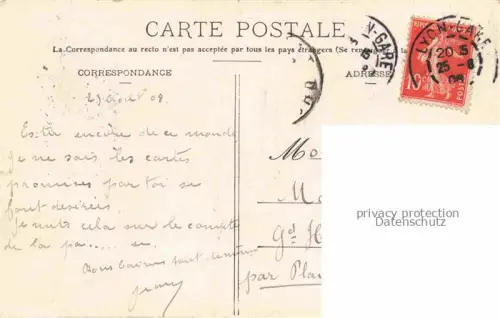 CARTE POSTALE
La Correspondance au recto n'est pas acceptée par tous les pays étrangers (Se renseigner à la
CORRESPONDANCE
ADRESSE
LYON-GARE
20 5
25 -8
08
N-GARE
10c
POSTES
25 août 08.
Es-tu encore de ce monde
je ne sais, les cartes
promises par toi se
font désirées.
Je mets cela sur le compte
de la pa.....
Gd H
par Pla
privacy protection
Datenschutz